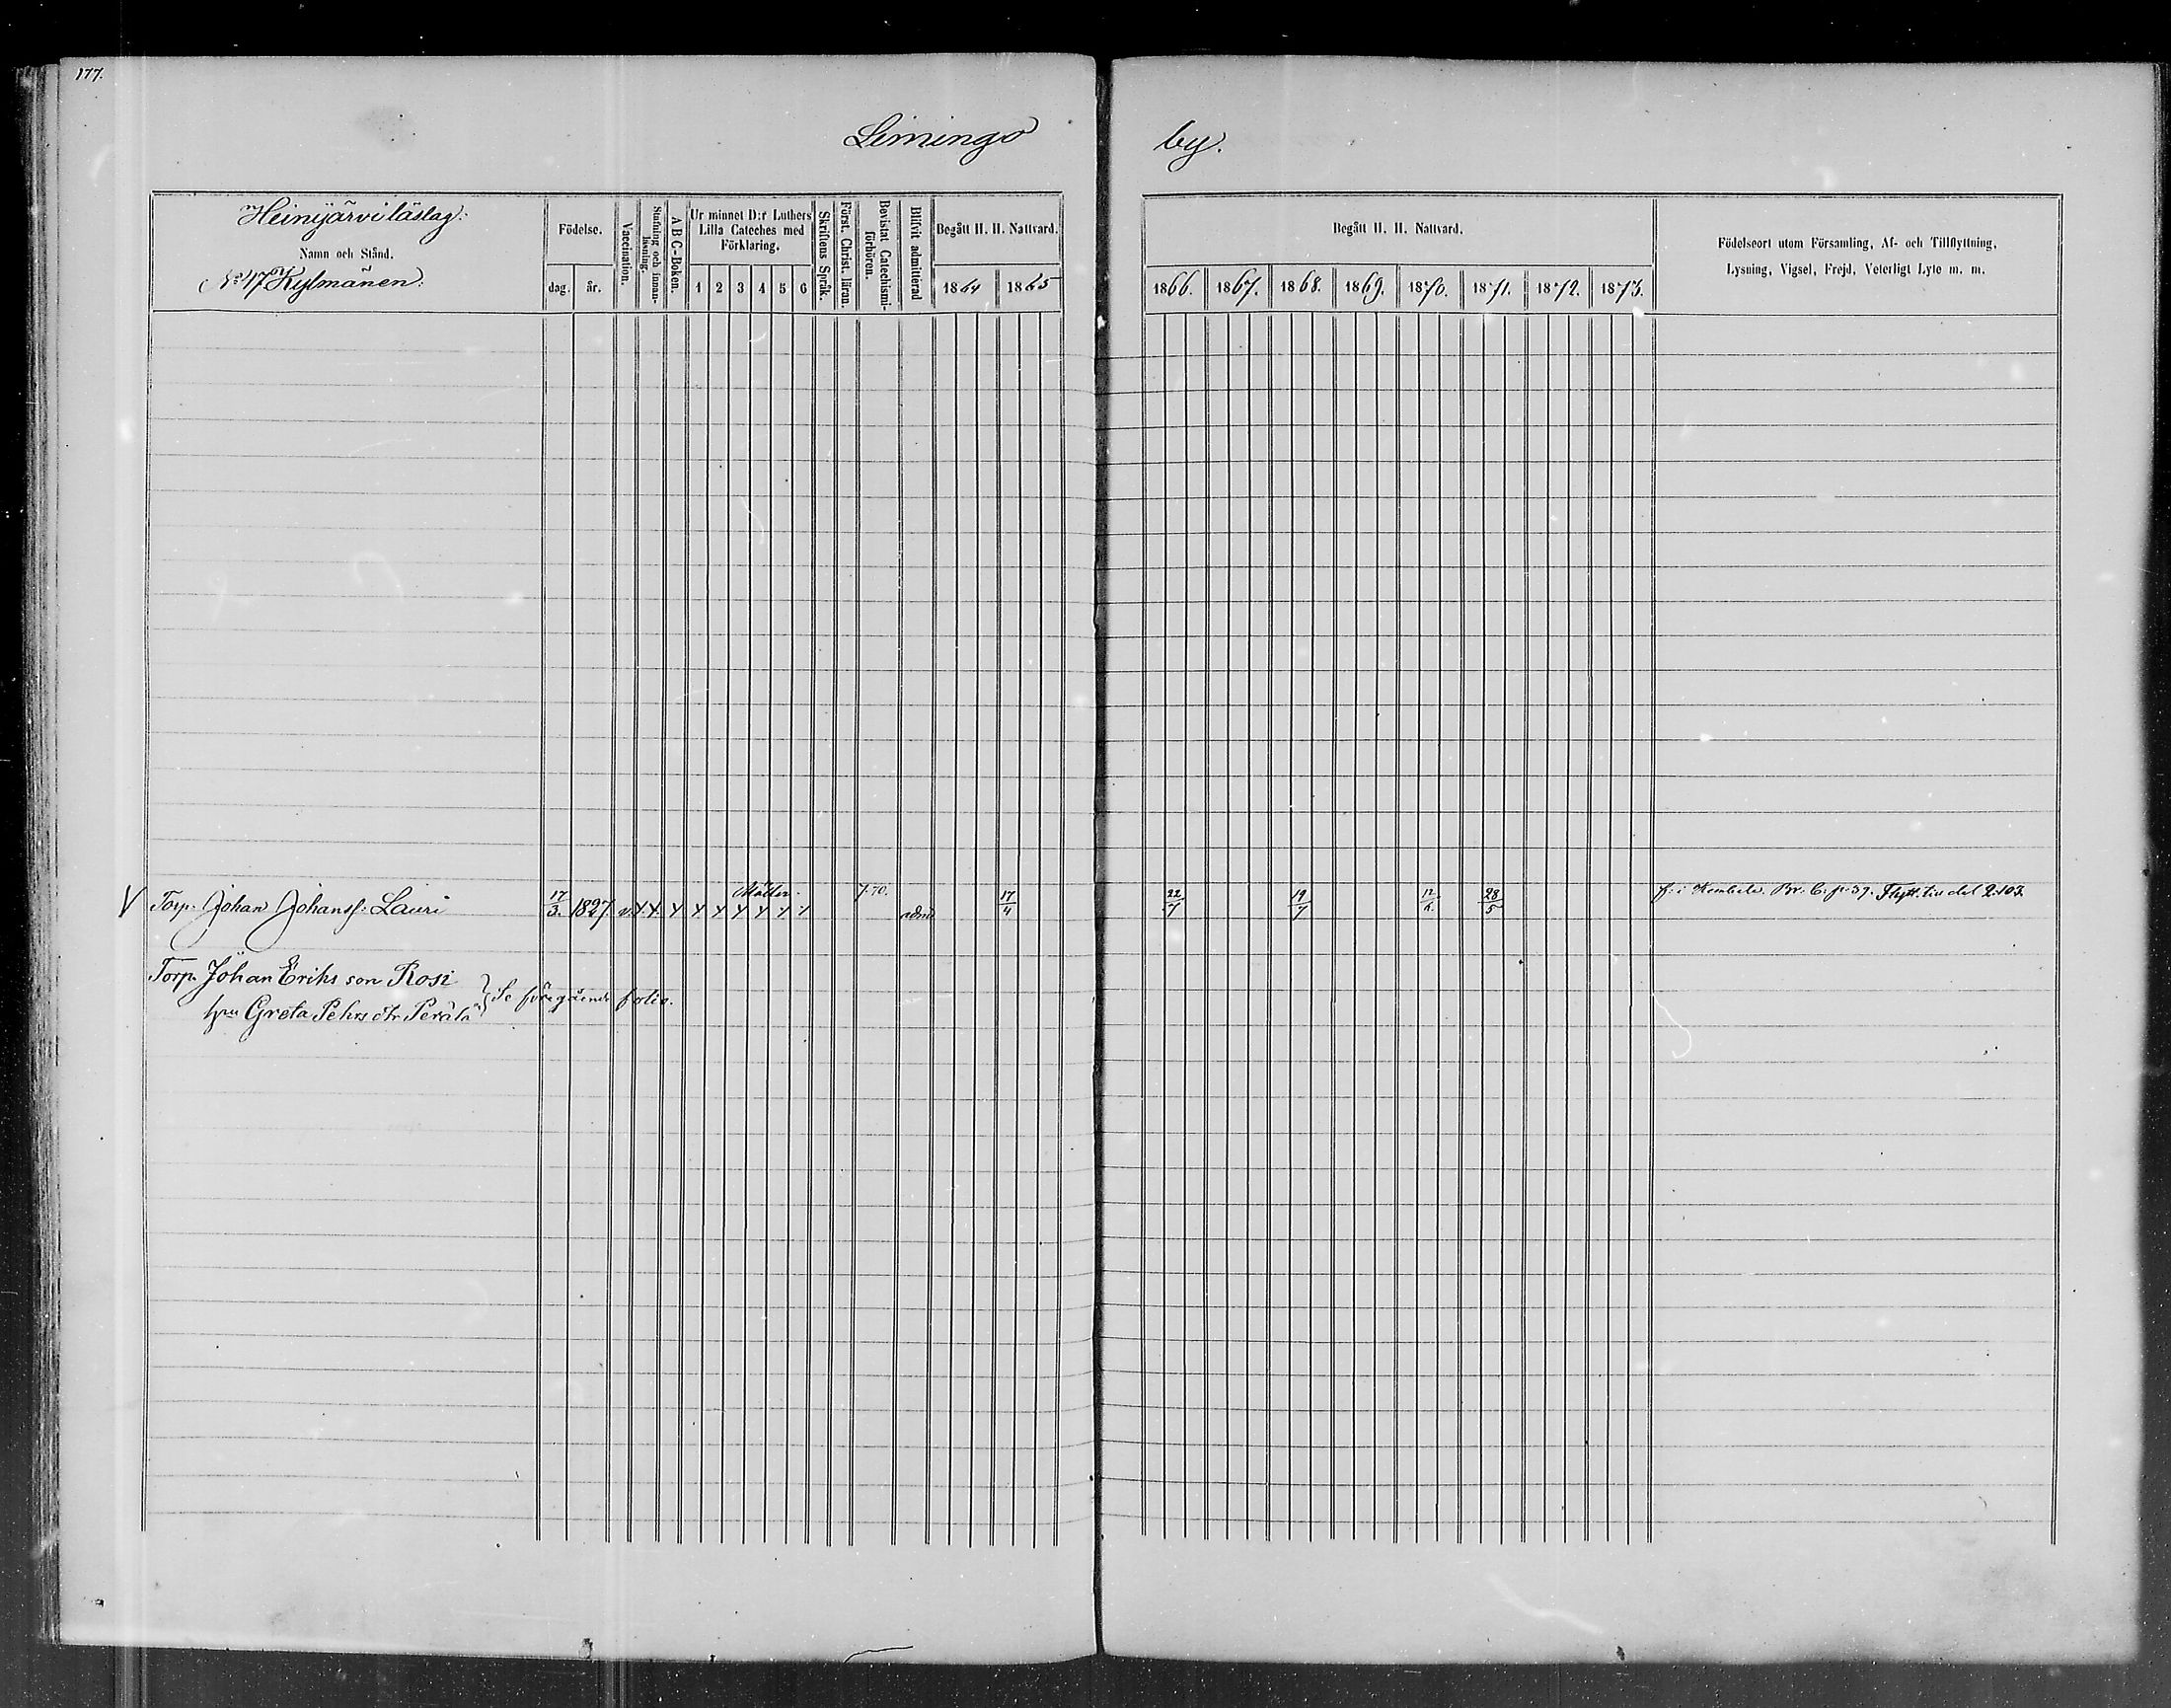 177.
Limingo by.
Heinijärvi läslag:
Namn och Stånd.
No 47 Kylmänen:
Födelse.
dag. år.
Vaccination.
Stafning och innan-läsning.
A B C-Boken.
Ur minnet D:r Luthers
Lilla Cateches med
Förklaring.
1 2 3 4 5 6
Skriftens Språk.
Först. Christ. läran.
Bevistat Catechismi-förhören.
Blifvit admitterad
Begått H. H. Nattvard.
1864 1865
Begått H. H. Nattvard.
1866. 1867. 1868. 1869. 1870. 1871. 1872. 1873.
Födelseort utom Församling, Af- och Tillflyttning,
Lysning, Vigsel, Frejd, Veterligt Lyte m. m.
V Torp. Johan Johanss: Lauri 17/3. 1827 v. 7.70. adm 17/4 22/7 19/7 28/5 f: i Kembele. Br. 6. p. 37. Flytt. till del 2.103.
Torp. Johan Eriks son Rosi
hru Greta Pehrs dtr Perälä } Se föregående folio.